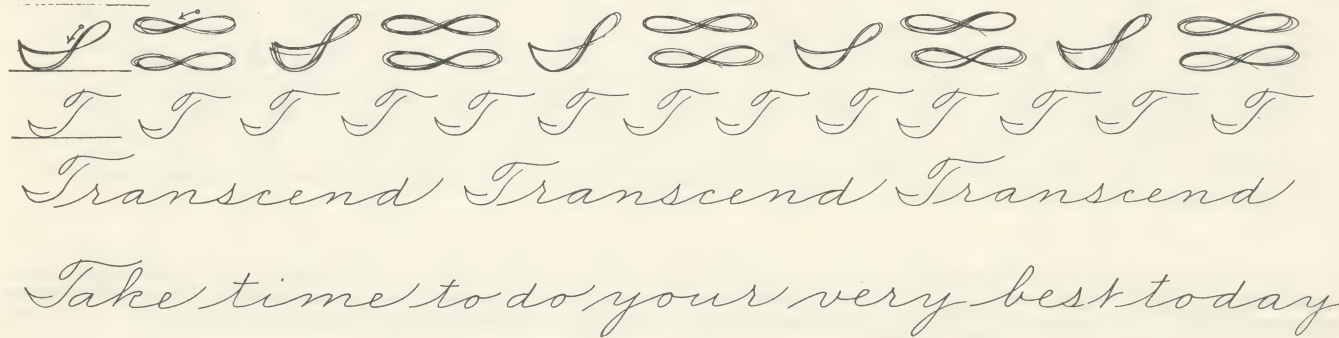 T T T T T T T T T T T T T
Transcend Transcend Transcend
Take time to do your very best today